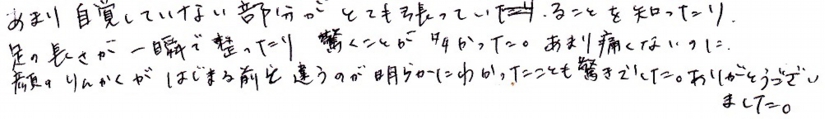 あまり自覚していけない部分がとても張っていることを知ったり、
足の長さが一瞬で整ったり驚くことが多かった。あまり痛くないのに、
顔のりんかくがはじまる前と違うのが明らかにわかったことも驚きでした。ありがとうござい
ました。